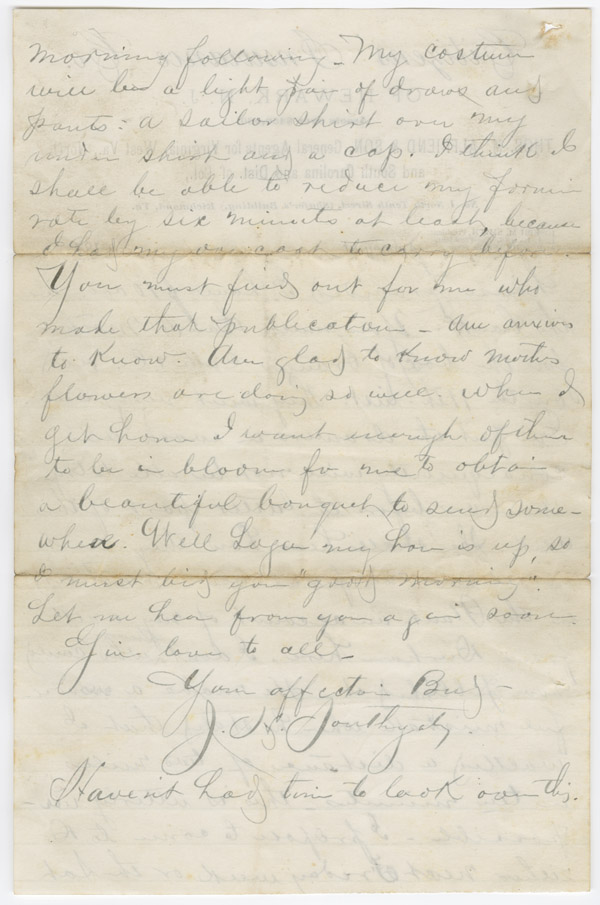 morning following - My costum
will be a light pair of draws and
pants: a sailor shirt over my
under shirt and a cap. I think I
shall be able to reduce my former
rate by six minutes at least, because
I had my over coat to carry before.
You must find out for me who
made that publication - Am anxious
to know. Am glad to know mothers
flowers are doing so well. When I
get home I want enough of them
to be in bloom for me to obtain
a beautiful bouquet to send some-
where. Well Logan my hour is up, so
I must bid you "good morning".
Let me hear from you again soon.
Give love to all -
Your affection Bud -
J. Southgate
Haven't had time to look over this.